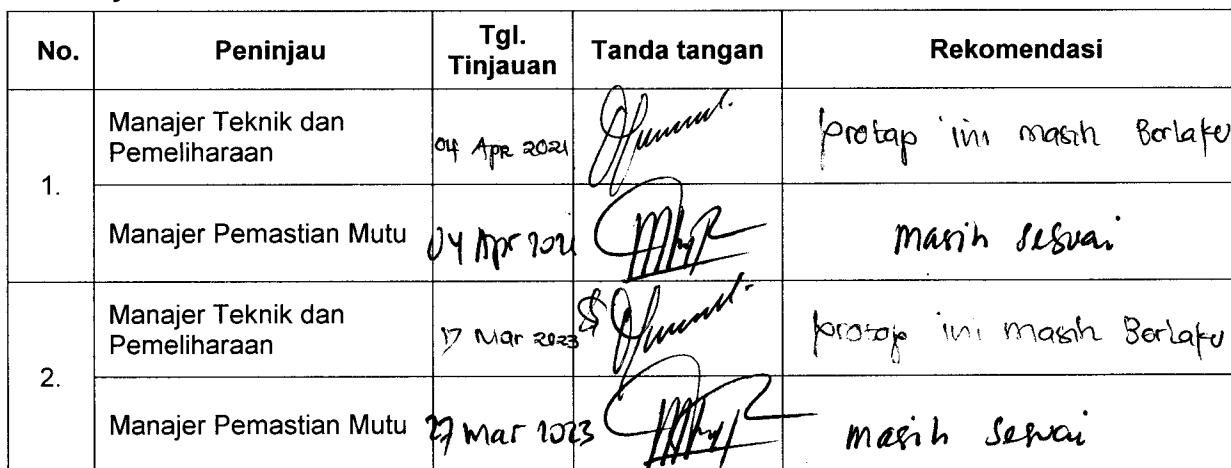 No. Peninjau Tgl. Tinjauan Tanda tangan Rekomendasi
1. Manajer Teknik dan Pemeliharaan 04 Apr 2021 protap ini masih Berlaku
Manajer Pemastian Mutu 04 Apr 2021 masih sesuai
2. Manajer Teknik dan Pemeliharaan Mar 2023 protap ini masih Berlaku
Manajer Pemastian Mutu 27 Mar 2023 masih sesuai